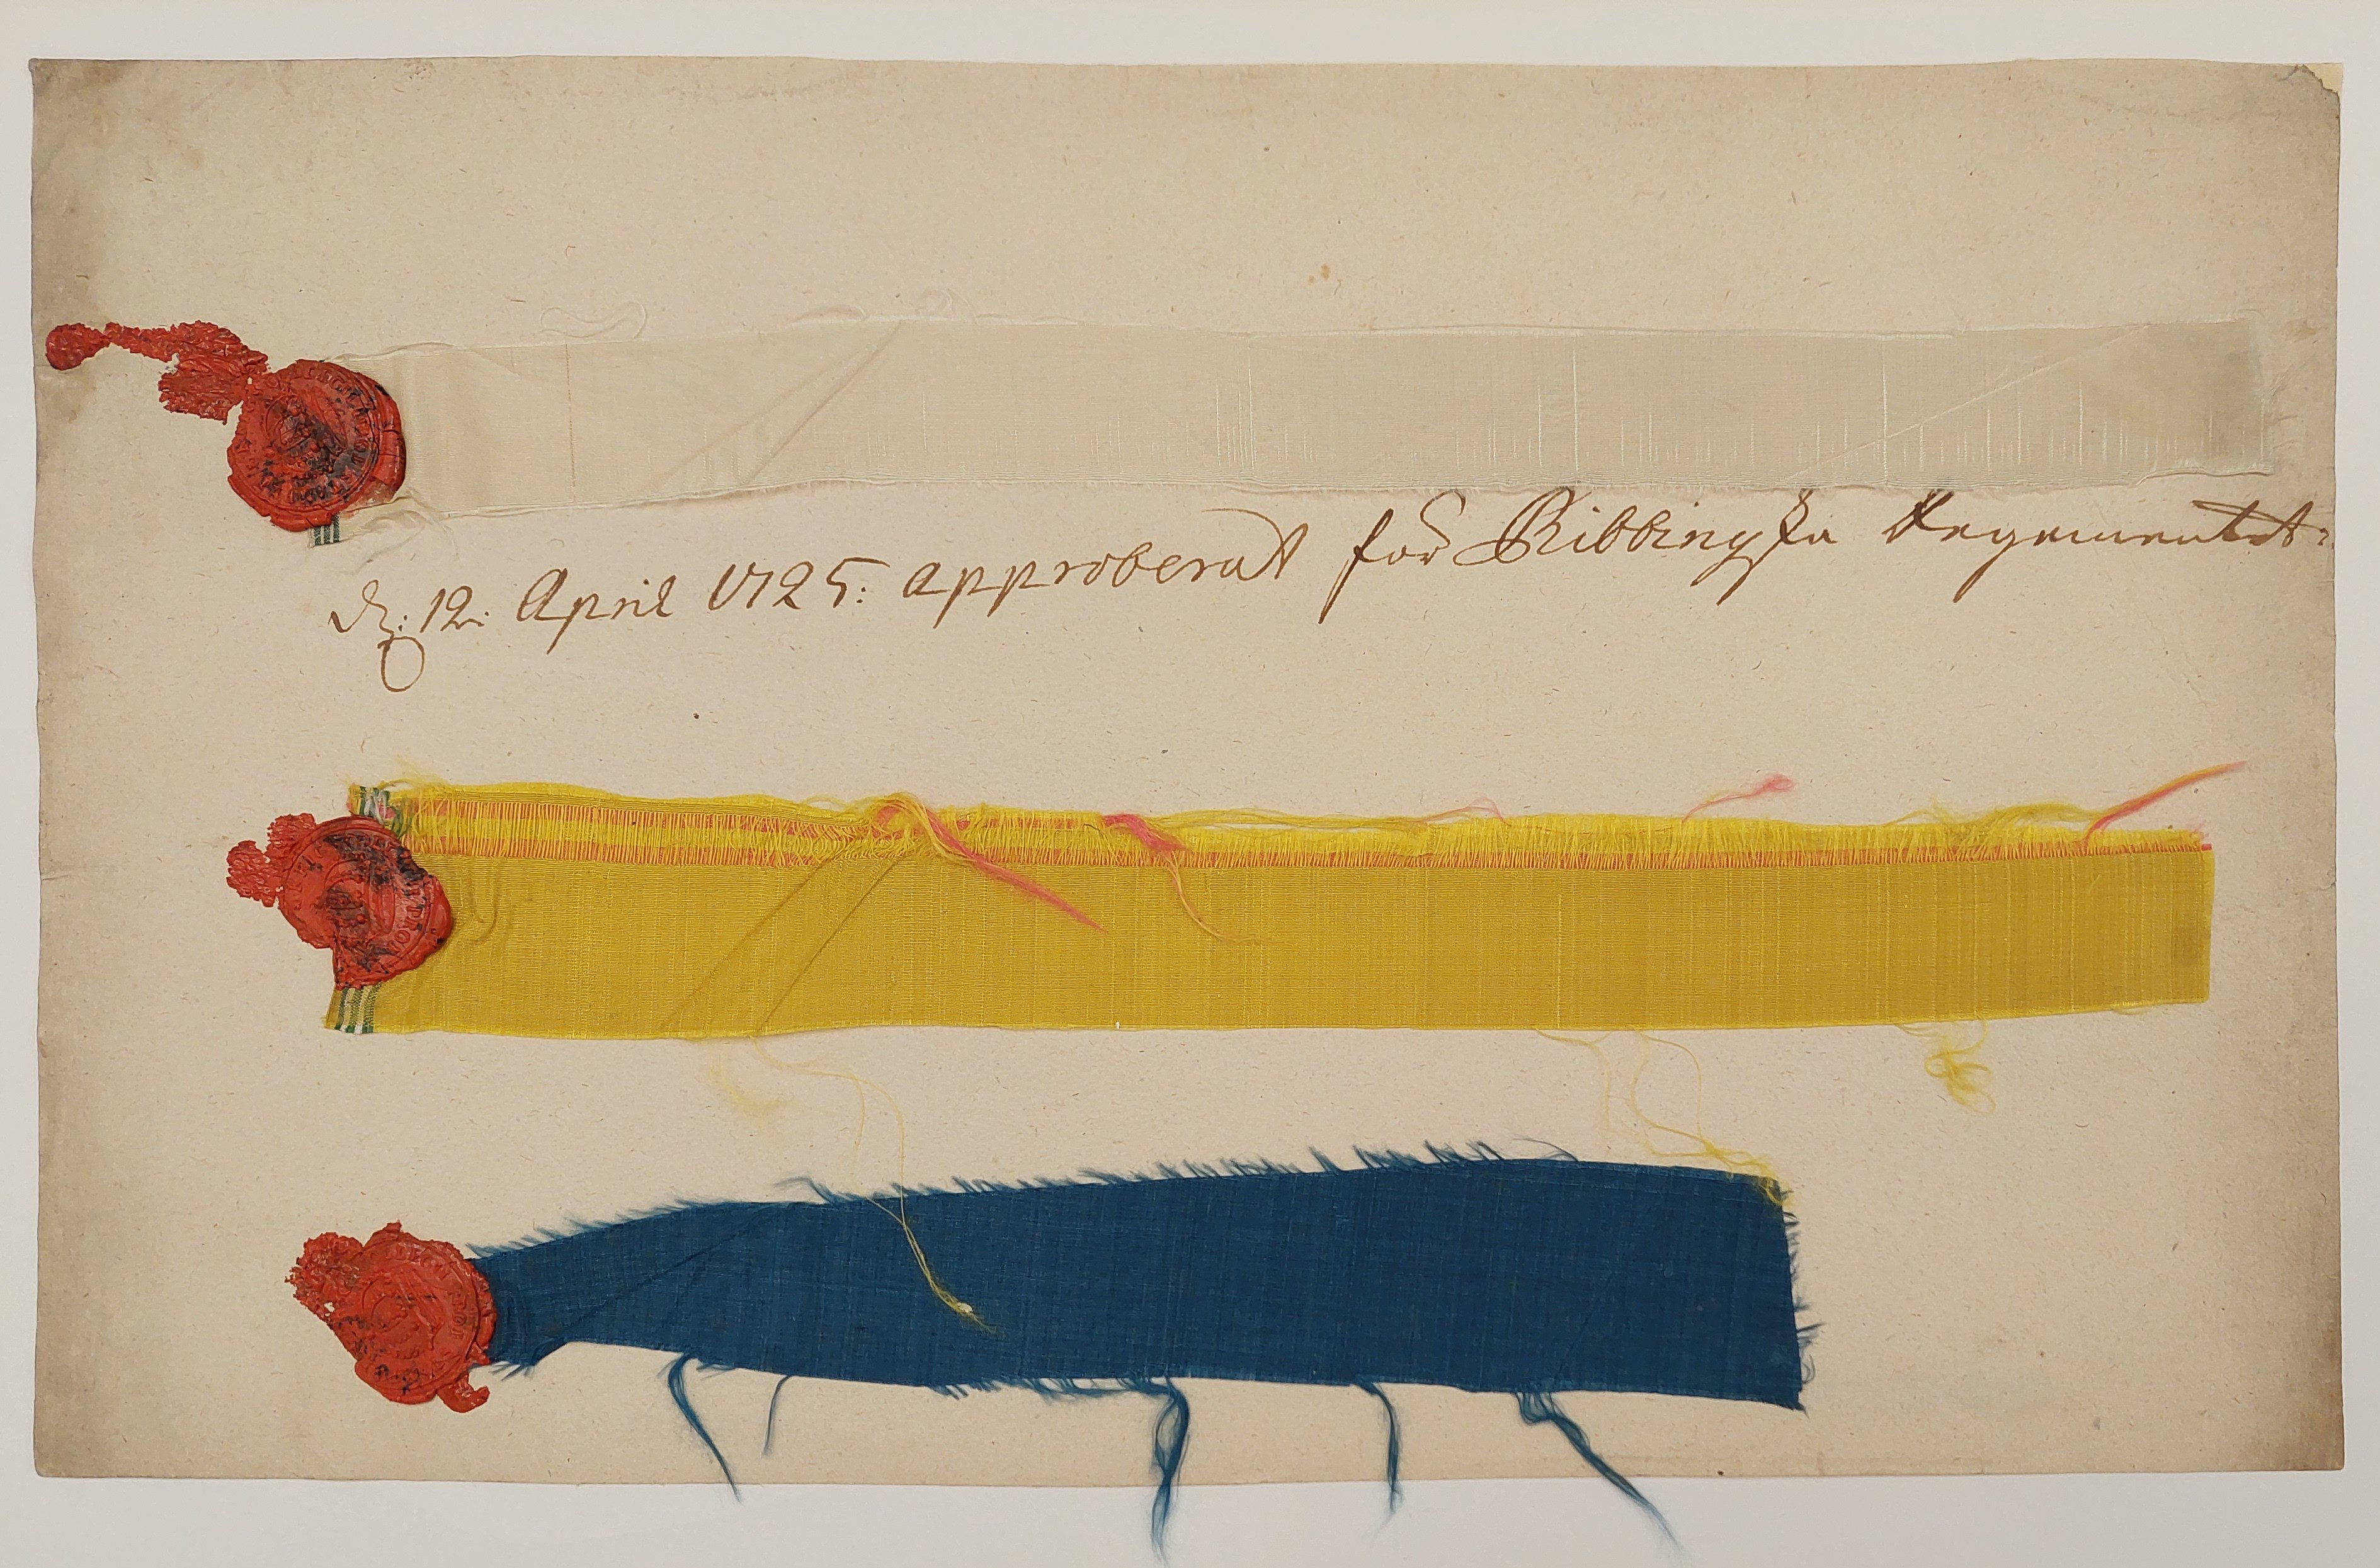 d. 12: April 1725: approberat för Ribbingska Regementet: